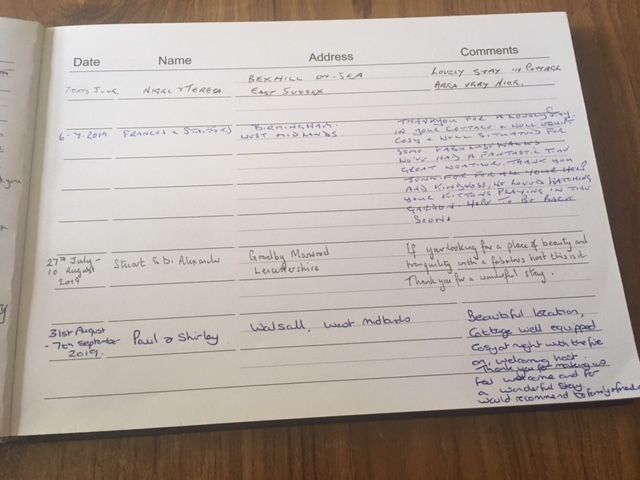 Date Name Address Comments
June Nigel & Teresa BEXHILL ON-SEA LOVELY STAY in COTTAGE
EAST SUSSEX AREA VERY NICE.
6-7-2019 FRANCES & BIRMINGHAM. THANKYOU FOR A LOVELY STAY.
WEST MIDLANDS IN YOUR COTTAGE & WELL EQUIPT
COSY & WELL SITUATED FOR
SOME FABULOUS WALKS
WE'VE HAD A FANTASTIC TIME
GREAT WEATHER, THANK YOU
JENNIFER FOR ALL YOUR HELP
AND KINDNESS, WE LOVED WATCHING
YOUR KITTENS PLAYING IN THE
GARDEN. HOPE TO BE BACK
SOON.
27th July - Stuart & Di Alexander Granby If your looking for a place of beauty and
10 August Leicestershire tranquility with a fabulous host this is it
2019 Thank you for a wonderful stay.
31st August Paul & Shirley Walsall, West Midlands Beautiful location,
- 7th September Cottage well equipped
2019. Cosy at night with the fire
on, welcoming host.
Thank you for making us
feel welcome and for
a wonderful stay
would recommend to family & friends